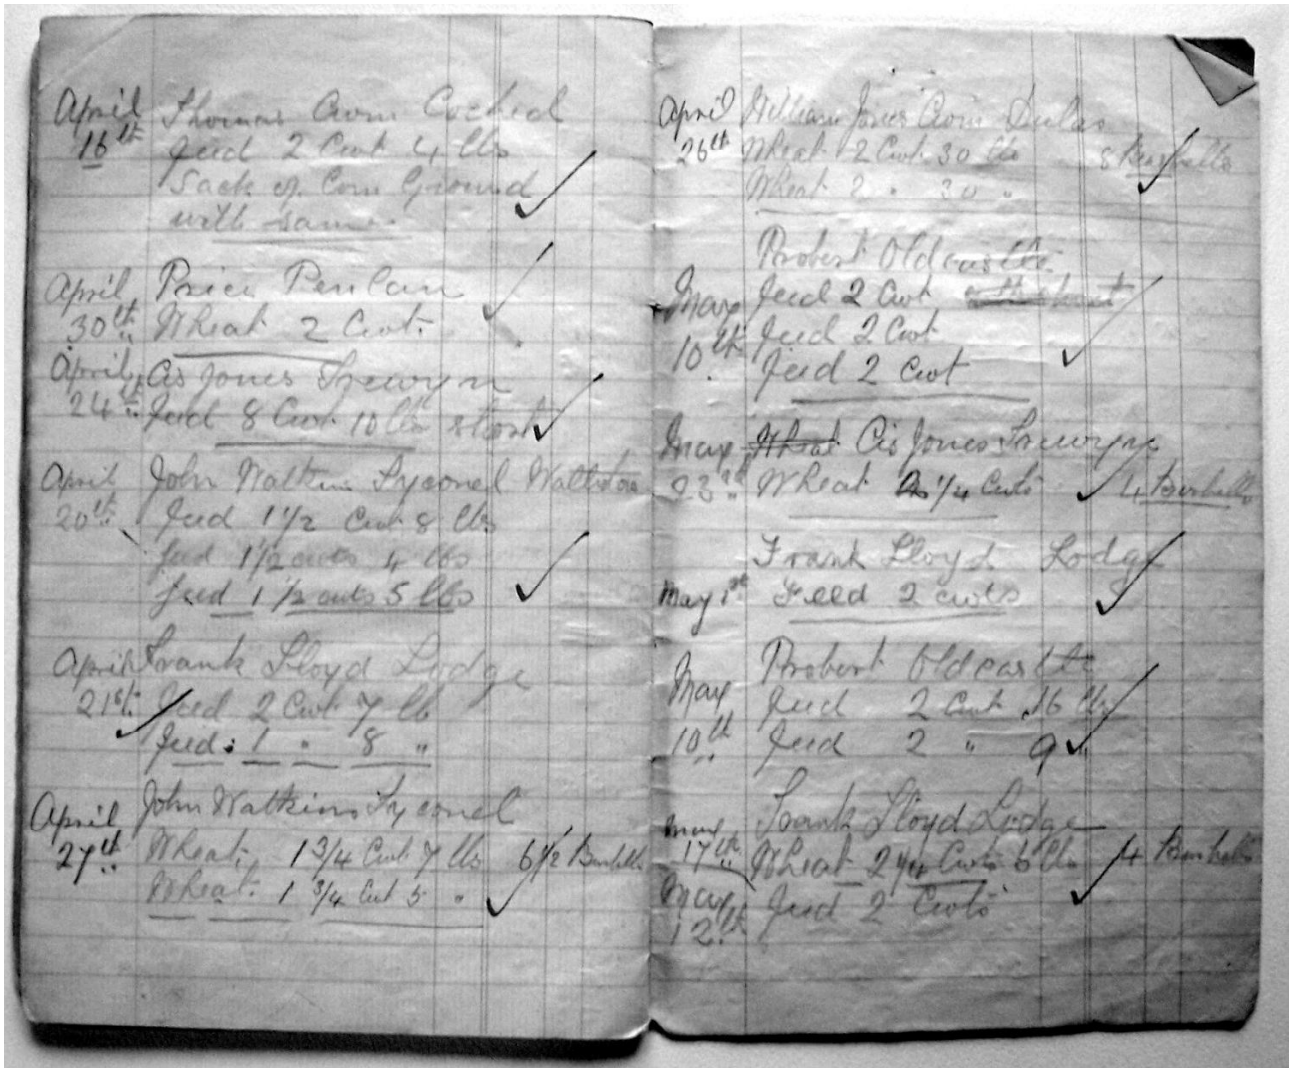 April Thomas Cwm Coched
16th feed 2 Cwt 4 lbs
Sack of Corn Ground
with same
April Price Penlan
30th Wheat 2 Cwt.
April Cis Jones Trewyn
24th feed 8 Cwt 10 lbs short
April John Watkins Tyconel Walterstone
20th feed 1 1/2 Cwt 8 lbs
feed 1 1/2 cwts 4 lbs
feed 1 1/2 cwts 5 lbs
April Frank Lloyd Lodge
21st feed 2 Cwt 7 lb
feed 1 " 8 "
April John Watkins Tyconel
27th Wheat 1 3/4 Cwt 7 lbs 6 1/2 Bushells
Wheat 1 3/4 Cwt 5 "
April William Jones Cwm Dulas
26th Wheat 2 Cwt 30 lbs 8 Bushells
Wheat 2 " 30 "
Probert Oldcastle
May feed 2 Cwt
10th feed 2 Cwt
feed 2 Cwt
May Wheat Cis Jones Trewyn
23rd Wheat 1/4 Cwts 4 Bushells
Frank Lloyd Lodge
May 1st Feed 2 cwts
Probert Oldcastle
May feed 2 Cwt 16 lbs
10th feed 2 " 9 "
Frank Lloyd Lodge
May 17th Wheat 2 1/4 Cwts 6 lbs 4 Bushells
May 12th feed 2 Cwts